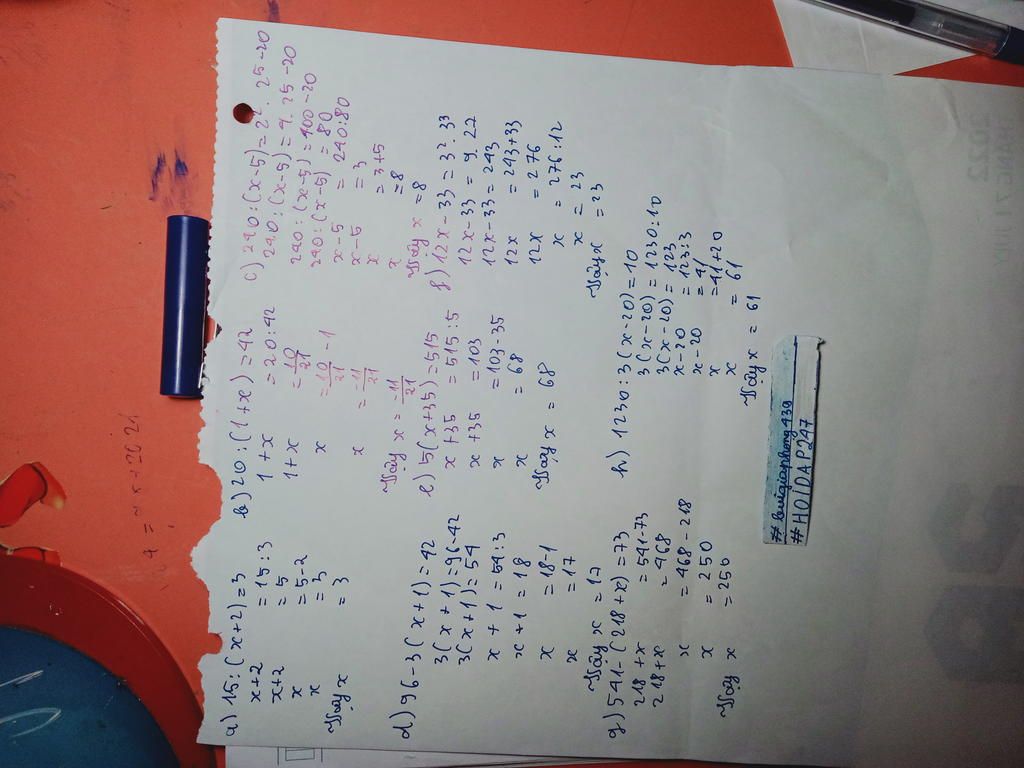 a) 15 : (x+2) = 3
x+2 = 15 : 3
x+2 = 5
x = 5-2
x = 3
Vậy x = 3
b) 20 : (1+x) = 42
1+x = 20 : 42
1+x = 10/21
x = 10/21 - 1
x = -11/21
Vậy x = -11/21
c) 240 : (x-5) = 2². 25-20
240 : (x-5) = 4. 25-20
240 : (x-5) = 100-20
240 : (x-5) = 80
x-5 = 240:80
x-5 = 3
x = 3+5
x = 8
Vậy x = 8
d) 96-3(x+1) = 42
3(x+1) = 96-42
3(x+1) = 54
x+1 = 54:3
x+1 = 18
x = 18-1
x = 17
Vậy x = 17
e) 5(x+35) = 515
x+35 = 515:5
x+35 = 103
x = 103-35
x = 68
Vậy x = 68
f) 12x-33 = 3². 3³
12x-33 = 9. 27
12x-33 = 243
12x = 243+33
12x = 276
x = 276:12
x = 23
Vậy x = 23
g) 541-(218+x) = 73
218+x = 541-73
218+x = 468
x = 468-218
x = 250
Vậy x = 250
h) 1230 : 3(x-20) = 10
3(x-20) = 1230:10
3(x-20) = 123
x-20 = 123:3
x-20 = 41
x = 41+20
x = 61
Vậy x = 61
#buigiaphong439
#HOIDAP247
2022